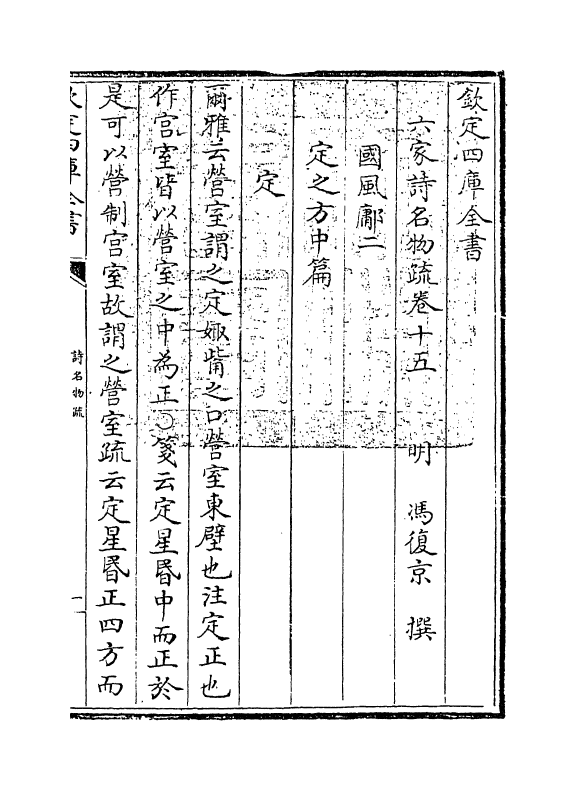 欽定四庫全書
六家詩名物疏卷十五 明 馮復京 撰
國風鄘二
定之方中篇
定
爾雅云營室謂之定娵觜之口營室東壁也注定正也
作宫室皆以營室之中為正○箋云定星昬中而正於
是可以營制宫室故謂之營室疏云定星昬正四方而
欽定四庫全書
詩名物疏
一